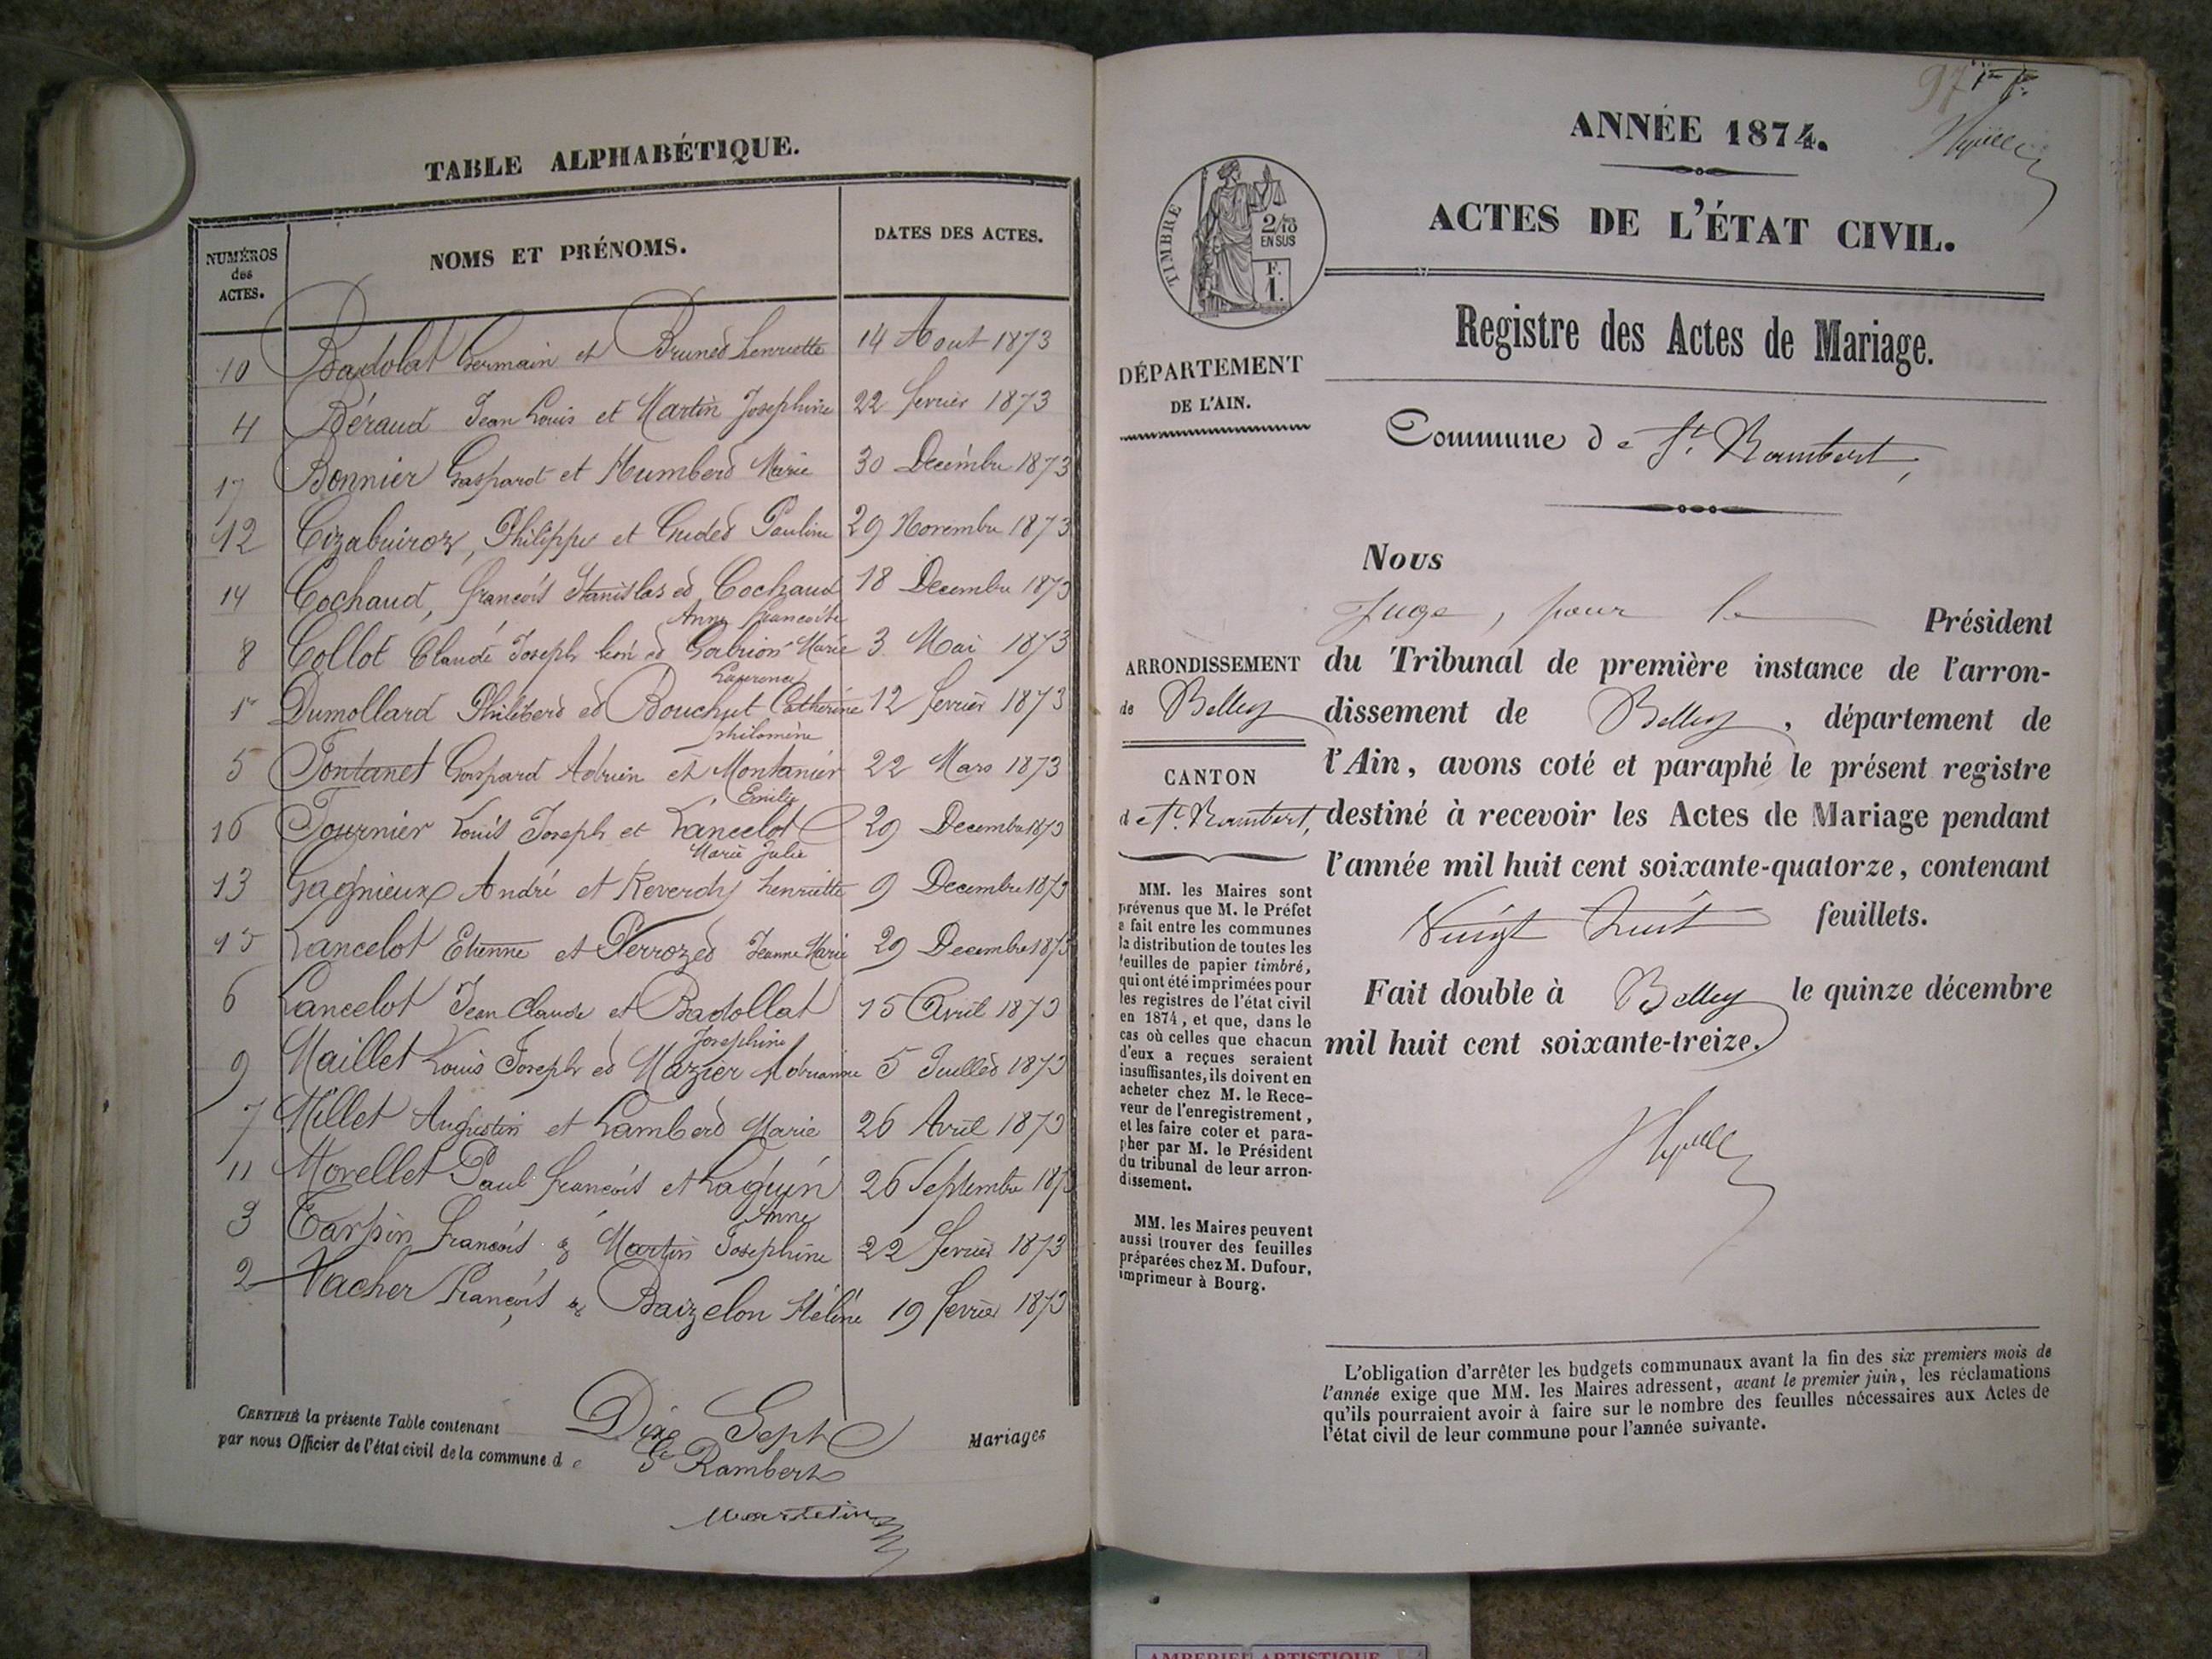 TABLE ALPHABÉTIQUE.
NUMÉROS
des
ACTES.
NOMS ET PRÉNOMS.
DATES DES ACTES.
10 Badolat Germain et Bruned henriette 14 Aout 1873
4 Béraud Jean Louis et Martin Josephine 22 fevrier 1873
17 Bonnier Gaspard et Humberd Marie 30 Decémbre 1873
12 Cizabuiroz, Philippe et Pauline 29 Novembre 1873
14 Cochaud, francois Stanislas ed Cochaud 18 Decembre 1873
Anne francoise
8 Collot Claude Joseph léon ed Gabrion Marie 3 Mai 1873
1er Dumollard Philiberd ed Bouchut Catherine 12 fevrier 1873
philomène
5 Fontanet Gaspard Adrien et Montanier 22 Mars 1873
Emilie
16 Fournier Louis Joseph et Lancelot 29 Decembre 1873
Marie Julie
13 Gagnieux André et Reverdy henriette 9 Decembre 1873
15 Lancelot Etienne et Perrozed Jeanne Marie 29 Decembre 1873
6 Lancelot Jean Claude et Badollat 15 Avril 1873
Josephine
9 Maillet Louis Joseph ed Mazier Adrianne 5 Juilled 1873
7 Millet Augustin et Lamberd Marie 26 Avril 1873
11 Morellet Paul francois et Laguin 26 Septembre 1873
Anne
3 Tarpin francois & Martin Josephine 22 fevrier 1873
2 Vacher François & Baizelon Hélène 19 fevrier 1873
CERTIFIÉ la présente Table contenant Dixe Sept Mariages
par nous Officier de l'état civil de la commune d e St Rambert
97 1er f.
ANNÉE 1874.
ACTES DE L'ÉTAT CIVIL.
TIMBRE
2/10
EN SUS
F.
1.
Registre des Actes de Mariage.
DÉPARTEMENT
DE L'AIN.
Commune d e St. Rambert,
Nous
Juge, pour le Président
ARRONDISSEMENT
de Belley
du Tribunal de première instance de l'arron-
dissement de Belley, département de
l'Ain, avons coté et paraphé le présent registre
destiné à recevoir les Actes de Mariage pendant
l'année mil huit cent soixante-quatorze, contenant
Vingt huit feuillets.
Fait double à Belley le quinze décembre
mil huit cent soixante-treize.
CANTON
d e St. Rambert,
MM. les Maires sont
prévenus que M. le Préfet
a fait entre les communes
la distribution de toutes les
feuilles de papier timbré,
qui ont été imprimées pour
les registres de l'état civil
en 1874, et que, dans le
cas où celles que chacun
d'eux a reçues seraient
insuffisantes, ils doivent en
acheter chez M. le Rece-
veur de l'enregistrement,
et les faire coter et para-
pher par M. le Président
du tribunal de leur arron-
dissement.
MM. les Maires peuvent
aussi trouver des feuilles
préparées chez M. Dufour,
imprimeur à Bourg.
L'obligation d'arrêter les budgets communaux avant la fin des six premiers mois de
l'année exige que MM. les Maires adressent, avant le premier juin, les réclamations
qu'ils pourraient avoir à faire sur le nombre des feuilles nécessaires aux Actes de
l'état civil de leur commune pour l'année suivante.
ARTISTIQUE